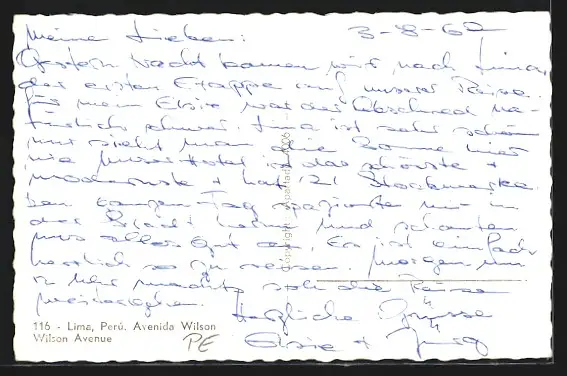 Meine Lieben: 3-8-62
Gestern Nacht kamen wir nach Lima,
der ersten Etappe auf unserer Reise.
Für mein Elsie war der Abschied na-
türlich schwer. Lima ist sehr schön
nur sieht man die Sonne hier
nie. Unser Hotel ist das schönste +
modernste + hat 21 Stockwerke.
Den ganzen Tag spazierten wir in
der Stadt herum und schauten
uns alles gut an. Es ist einfach
herrlich so zu reisen. Morgen um
2 Uhr nachts soll die Reise
weitergehen. Herzliche Grüsse
Elsie +
116 - Lima, Perú. Avenida Wilson
Wilson Avenue
PE
Copyright